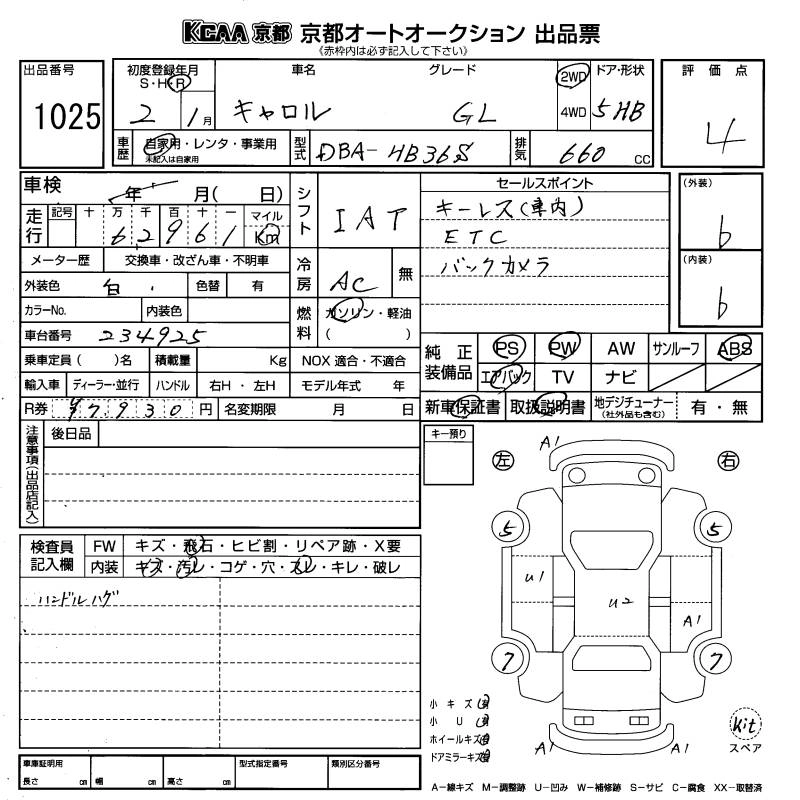 KCAA 京都 京都オートオークション 出品票
《赤枠内は必ず記入して下さい》
出品番号
1025
初度登録年月
S・H・R
2 1月
車名
キャロル
グレード
GL
2WD
4WD
ドア・形状
5HB
評価点
4
車歴
自家用・レンタ・事業用
未記入は自家用
型式
DBA-HB36S
排気
660 cc
車検
年 月( 日)
走行
記号 十 万 千 百 十 一 マイル
6 2 9 6 1 Km
シフト
IAT
セールスポイント
キーレス(車内)
ETC
バックカメラ
(外装)
b
(内装)
b
メーター歴 交換車・改ざん車・不明車
冷房
AC
無
外装色 白 色替 有
カラーNo. 内装色
燃料
ガソリン・軽油
( )
車台番号 234925
乗車定員( )名 積載量 Kg NOX 適合・不適合
輸入車 ディーラー・並行 ハンドル 右H・左H モデル年式 年
R券 ¥7930円 名変期限 月 日
純正装備品
PS PW AW サンルーフ ABS
エアバック TV ナビ
新車保証書 取扱説明書 地デジチューナー 有・無
(社外品も含む)
注意事項(出品店記入)
後日品
キー預り
検査員記入欄
FW キズ・飛石・ヒビ割・リペア跡・X要
内装 キズ・汚レ・コゲ・穴・スレ・キレ・破レ
ハンドルハゲ
左 右
A1
5 5
U1 U2 A1
7 7
A1 A1
小キズ 有
小U 有
ホイールキズ 有
ドアミラーキズ 有
Kit
スペア
車庫証明用
長さ cm 幅 cm 高さ cm
型式指定番号
類別区分番号
A―線キズ M―調整跡 U―凹み W―補修跡 S―サビ C―腐食 XX―取替済